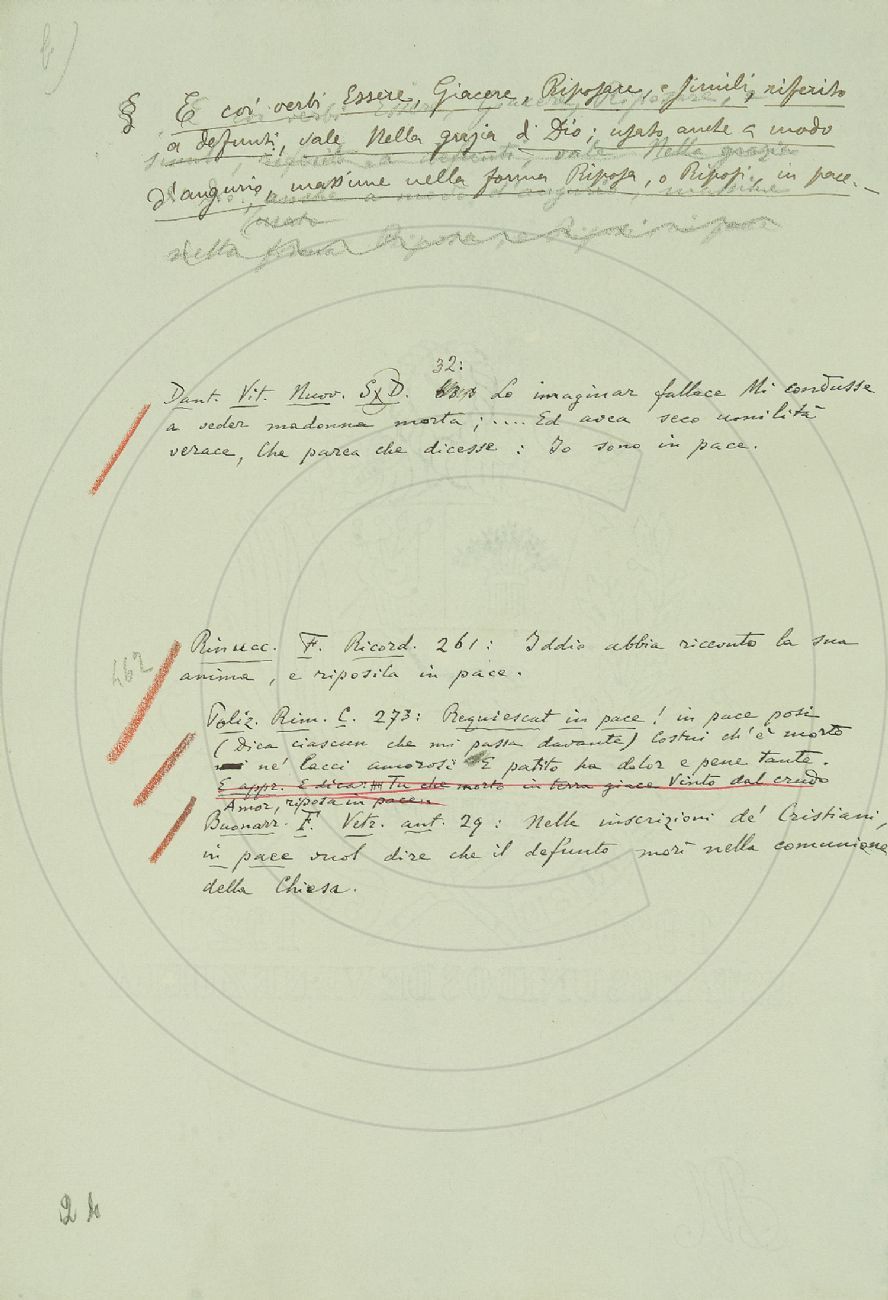 b)
§ E coi verbi Essere, Giacere, Riposare, e simili, riferito
a defunti, vale Nella grazia di Dio; usato anche a modo
d'augurio, massime nella forma Riposa, o Riposi, in pace. —
usato
nella forma Riposa, o Riposi
32:
Dant. Vit. Nuov. S D. Lo imaginar fallace Mi condusse
a veder madonna morta; .... Ed avea seco umilità
verace, Che parea che dicesse: Io sono in pace.
462
Rinucc. F. Ricord. 261: Iddio abbia ricevuto la sua
anima, e riposila in pace.
Poliz. Rim. C. 273: Requiescat in pace! in pace posi
(Dica ciascun che mi passa davante) Costui ch'è morto
ne' lacci amorosi E patito ha dolor e pene tante.
E appr. E dica: Tu che morto in terra giace Vinto dal crudo
Amor, riposa in pace.
Buonarr. F. Vetr. ant. 29: Nelle inscrizioni de' Cristiani,
in pace vuol dire che il defunto morì nella comunione
della Chiesa.
2 b